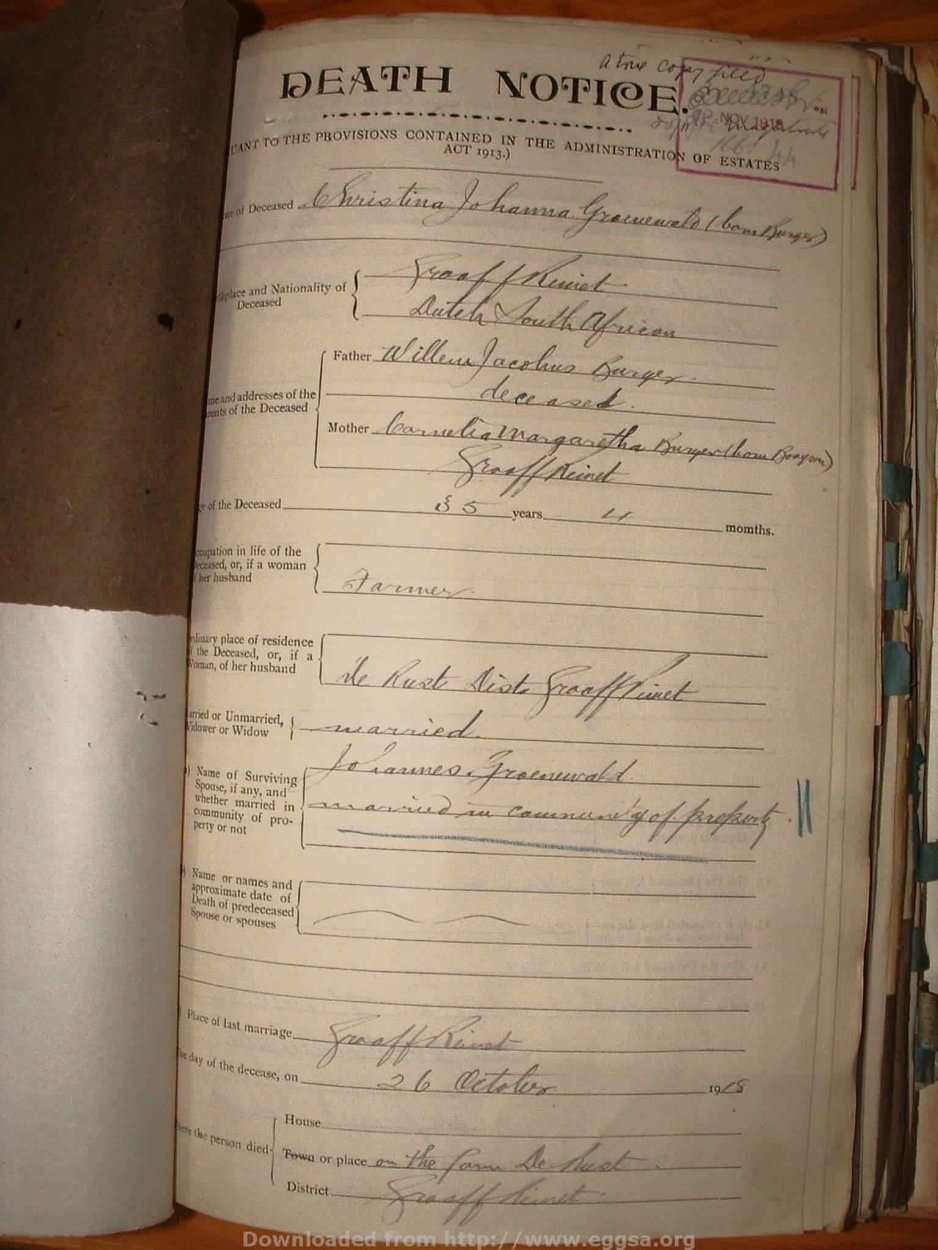 a true copy filed
DEATH NOTICE.
NOV 1918
UANT TO THE PROVISIONS CONTAINED IN THE ADMINISTRATION OF ESTATES
ACT 1913.)
me of Deceased Christina Johanna Groenewald (born Burger)
hplace and Nationality of Deceased
Graaff Reinet
Dutch South African
me and addresses of the
ents of the Deceased
Father Willem Jacobus Burger
deceased.
Mother Cornelia Margaretha Burger (born Booysen)
Graaff Reinet
ge of the Deceased 35 years 11 months.
ccupation in life of the
eceased, or, if a woman
f her husband
Farmer
rdinary place of residence
f the Deceased, or, if a
Woman, of her husband
De Rust Dist Graaff Reinet
arried or Unmarried,
Widower or Widow
married.
) Name of Surviving
Spouse, if any, and
whether married in
community of pro-
perty or not
Johannes Groenewald
married in community of property.
) Name or names and
approximate date of
Death of predeceased
Spouse or spouses
) Place of last marriage Graaff Reinet
he day of the decease, on 26 October 1918
here the person died
House
Town or place on the farm De Rust
District Graaff Reinet
Downloaded from http://www.eggsa.org